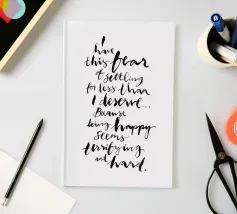 I
have
this fear
of settling
for less than
I deserve...
Because
being happy
seems
terrifying
and hard.